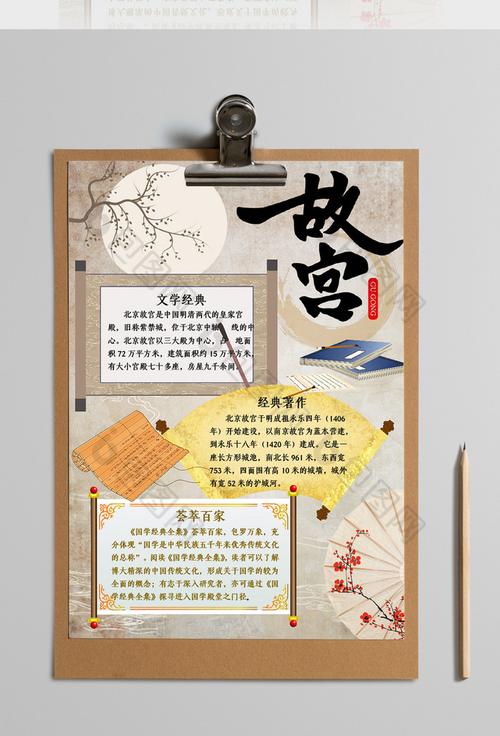 故宫
GU GONG
文学经典
北京故宫是中国明清两代的皇家宫
殿，旧称紫禁城，位于北京中轴线的中
心。北京故宫以三大殿为中心，占地面
积72万平方米，建筑面积约15万平方米，
有大小宫殿七十多座，房屋九千余间。
经典著作
北京故宫于明成祖永乐四年（1406
年）开始建设，以南京故宫为蓝本营建，
到永乐十八年（1420年）建成。它是一
座长方形城池，南北长961米，东西宽
753米，四面围有高10米的城墙，城外
有宽52米的护城河。
荟萃百家
《国学经典全集》荟萃百家，包罗万象，充
分体现“国学是中华民族五千年来优秀传统文化
的总称”。阅读《国学经典全集》，读者可以了解
博大精深的中国传统文化，形成关于国学的较为
全面的概念；有志于深入研究者，亦可通过《国
学经典全集》探寻进入国学殿堂之门径。